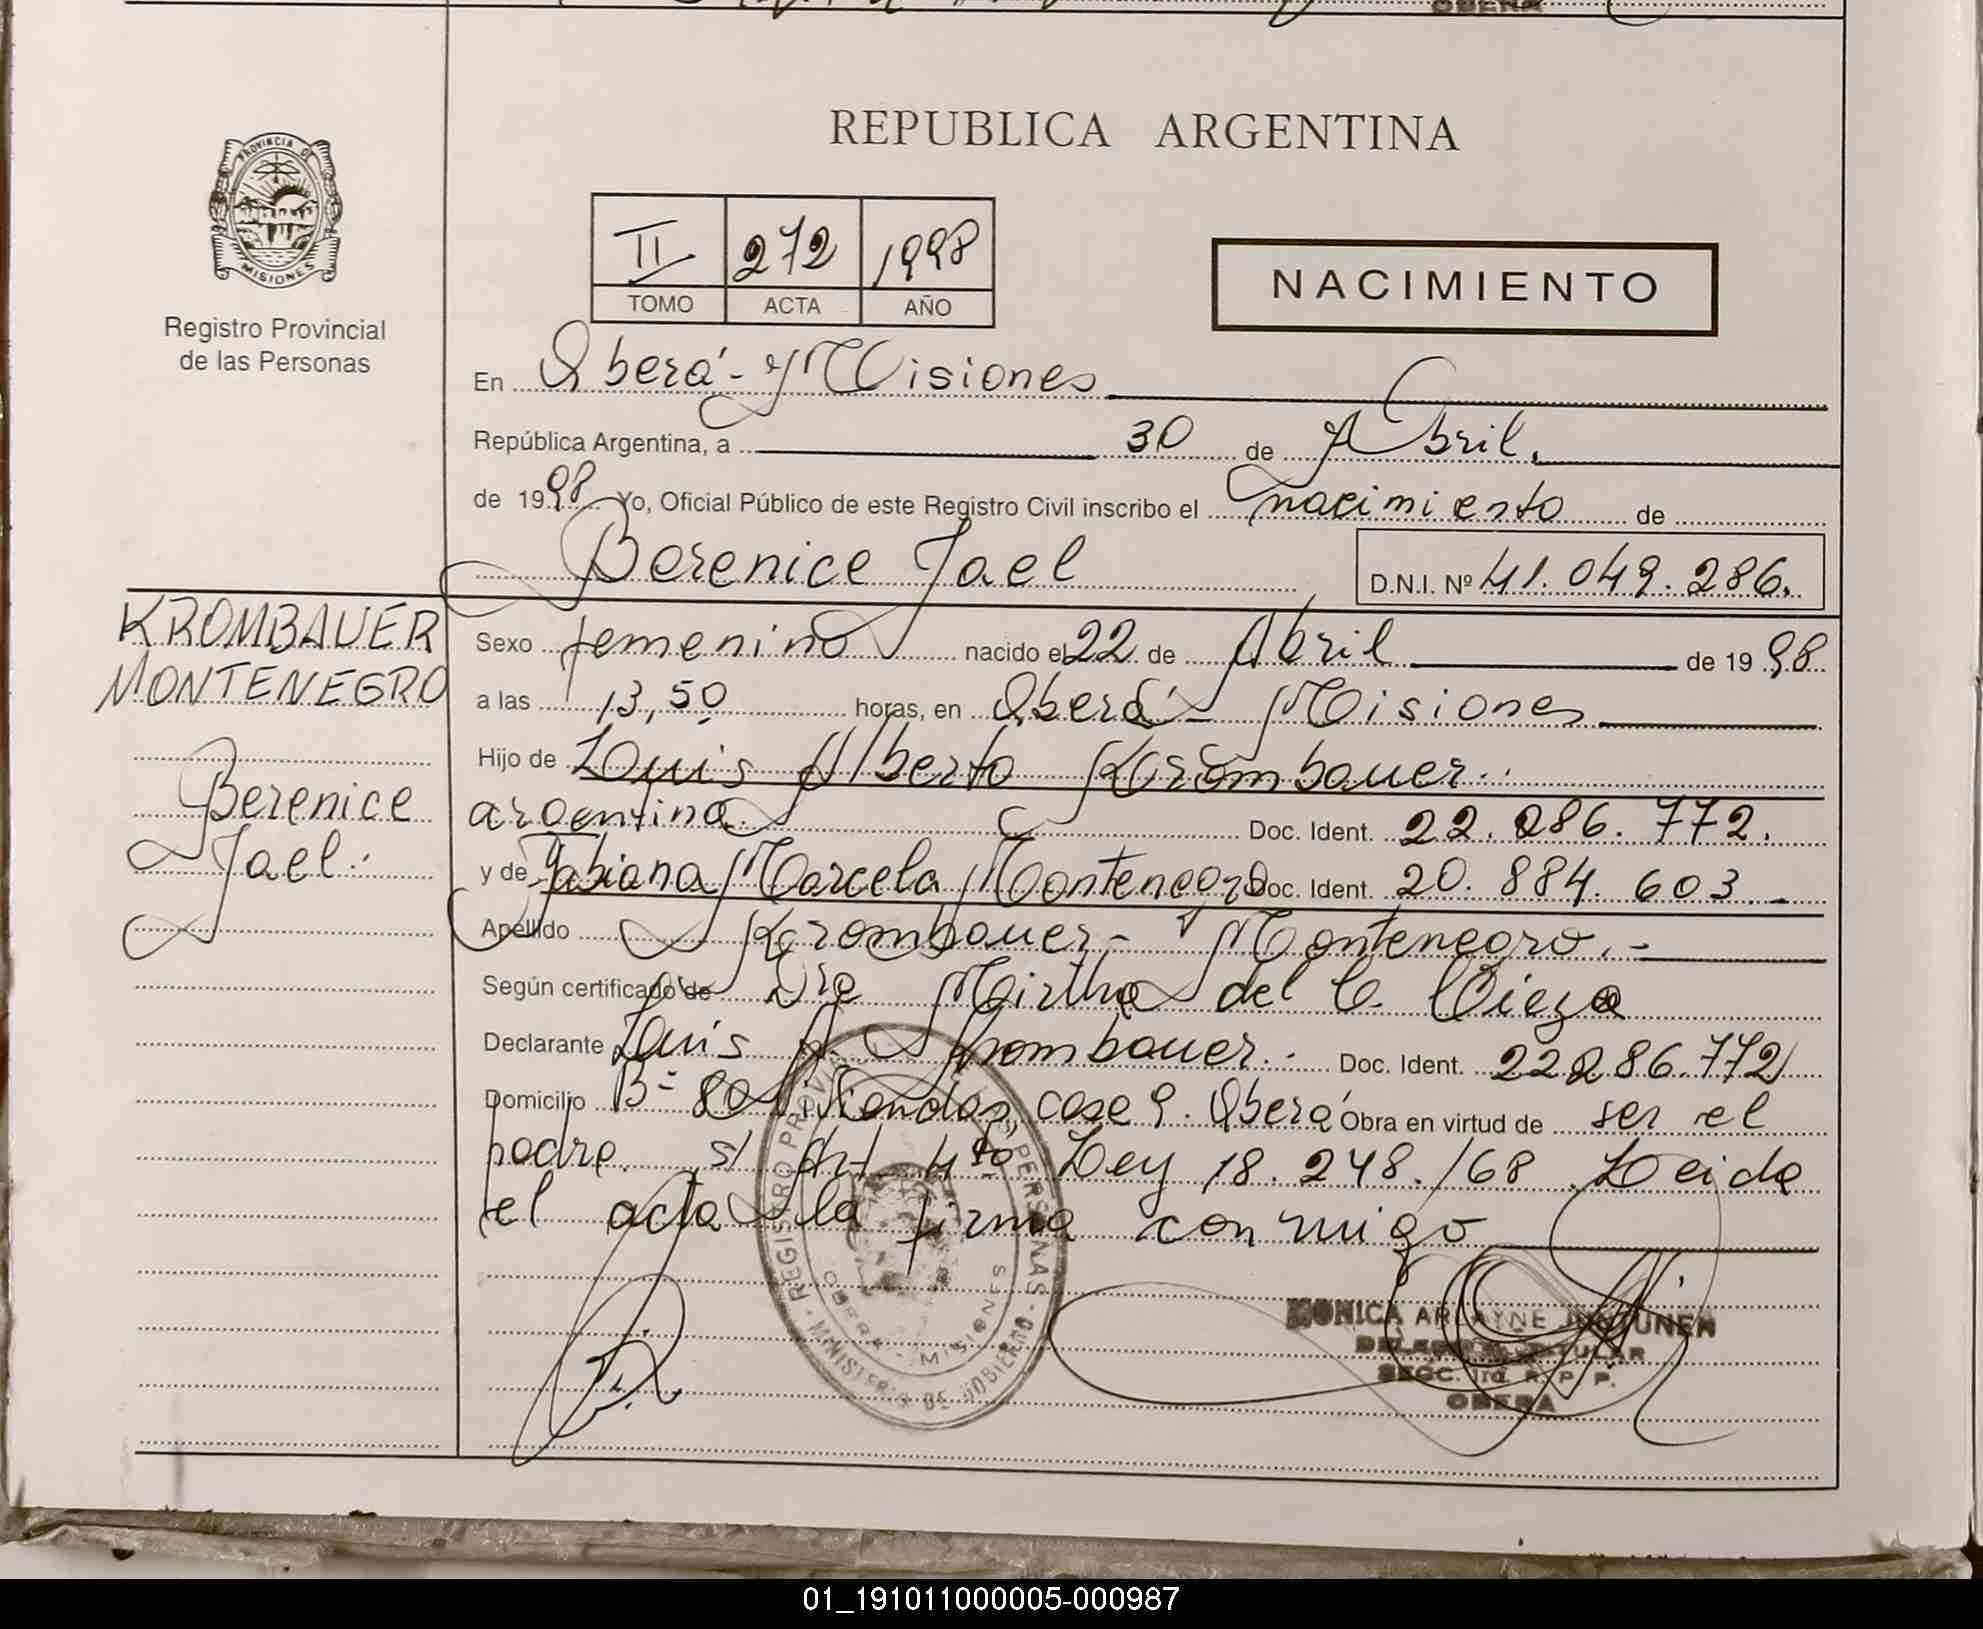 OBERA
REPUBLICA ARGENTINA
PROVINCIA DE
MISIONES
Registro Provincial
de las Personas
II 272 1998
TOMO ACTA AÑO
NACIMIENTO
En Oberá - Misiones
República Argentina, a 30 de Abril.
de 1998 Yo, Oficial Público de este Registro Civil inscribo el nacimiento de
Berenice Jael D.N.I. Nº 41.049.286.
KROMBAUER
MONTENEGRO
Berenice
Jael.
Sexo femenino nacido el 22 de Abril de 1998
a las 13,50 horas, en Oberá - Misiones
Hijo de Luis Alberto Krombauer.
argentina. Doc. Ident. 22.286.772.
y de Fabiana Marcela Montenegro Doc. Ident. 20.884.603.-
Apellido Krombauer - Montenegro.-
Según certificado de Dra Mirtha del C.
Declarante Luis A. Krombauer. Doc. Ident. 22286.772
Domicilio Bº 80 Viviendas, casa 9. Oberá Obra en virtud de ser el
padre. s/ Art 4to Ley 18.248./68 Leida
el acta la firma conmigo
REGISTRO PROVINCIAL DE LAS PERSONAS
OBERA - MISIONES
MINISTERIO DE GOBIERNO
MONICA ARLAYNE JUNTUNEN
DELEGADA TITULAR
SECC. 1ra. R. P. P.
OBERA
01_191011000005-000987